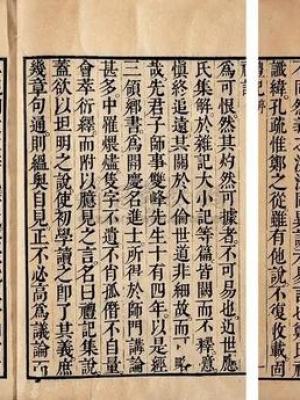 讖緯孔疏惟鄭之從雖有他說不復收載固
為可恨然其灼然可據者不可易也近世應
氏集解於雜記大小記等篇皆闕而不釋噫
慎終追遠其關於人倫世道非細故而
哉先君子師事雙峰先生十有四年以是經
三領鄉書為開慶名進士所得於師門講論
甚多中罹煨燼隻字不遺不肖孤僭不自量
會萃衍繹而附以臆見之言名曰禮記集說
蓋欲以坦明之說使初學讀之即了其義庶
幾章句通則縕奧自見正不必高為議論而